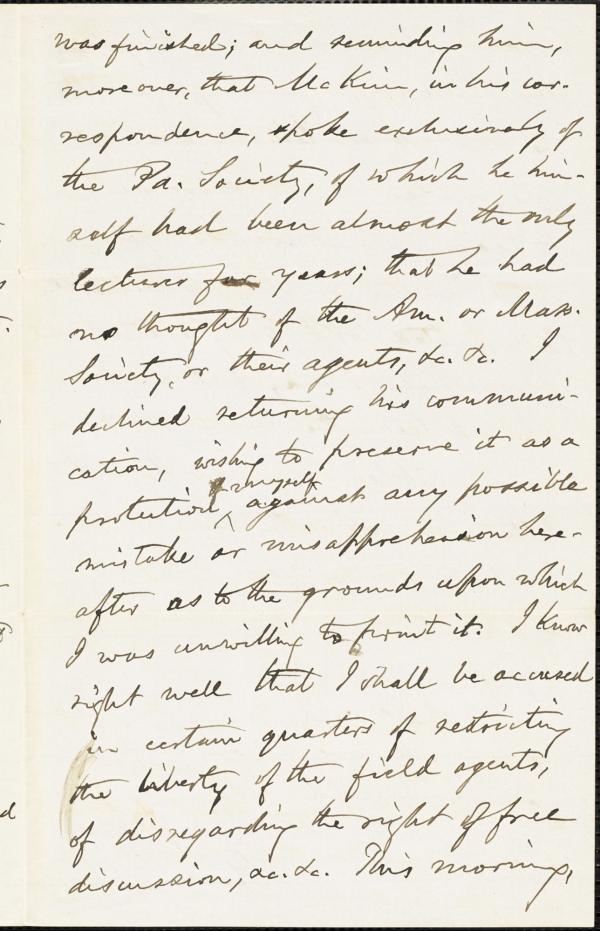 was finished; and reminding him,
moreover, that McKim, in his cor-
respondence, spoke exclusively of
the Pa. Society, of which he him-
self had been almost the only
lecturer for years; that he had
no thought of the Am. or Mass.
Society, or their agents, &c. &c. I
declined returning his communi-
cation, wishing to preserve it as a
to myself
protection ^ against any possible
mistake or misapprehension here-
after as to the grounds upon which
I was unwilling to print it. I know
right well that I shall be accused
in certain quarters of restricting
the liberty of the field agents,
of disregarding the right of free
discussion, &c. &c. This morning,